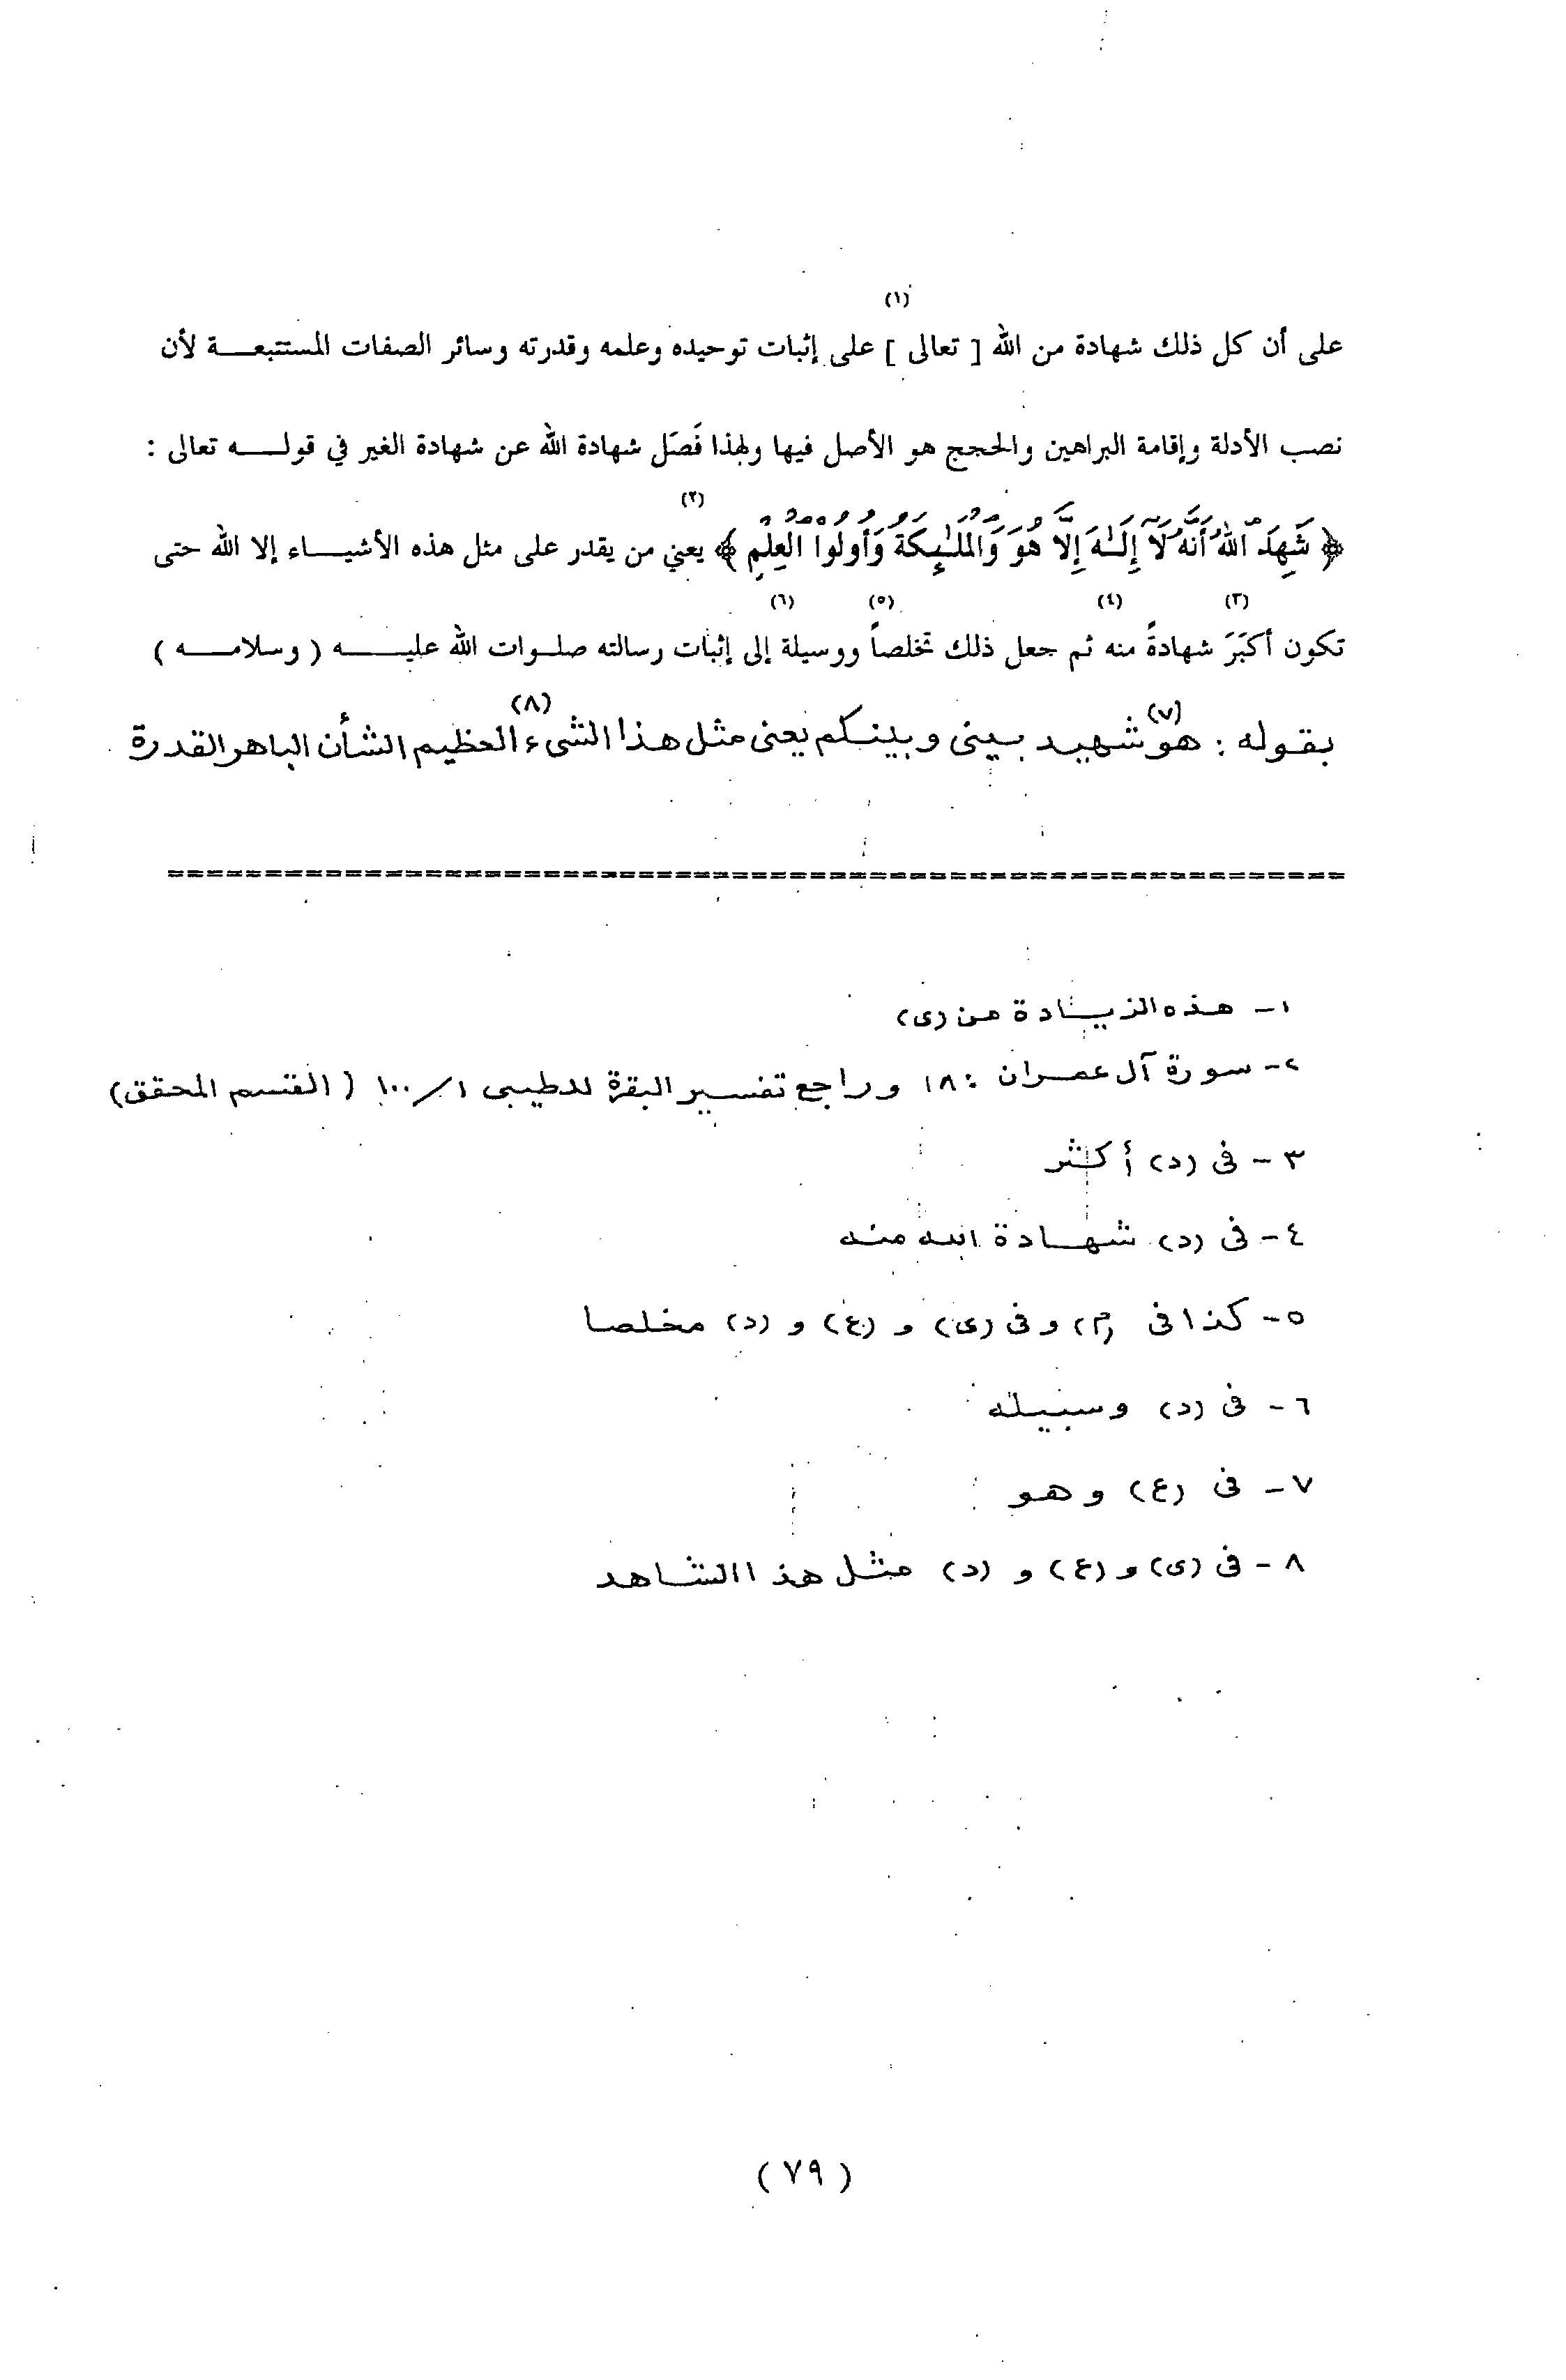 على أن كل ذلك شهادة من الله [ تعالى ](١) على إثبات توحيده وعلمه وقدرته وسائر الصفات المستتبعة لأن
نصب الأدلة وإقامة البراهين والحجج هو الأصل فيها ولهذا فَصَل شهادة الله عن شهادة الغير في قوله تعالى :
﴿ شَهِدَ اللَّهُ أَنَّهُ لَآ إِلَـٰهَ إِلَّا هُوَ وَالْمَلَـٰٓئِكَةُ وَأُولُوا الْعِلْمِ ﴾(٢) يعني من يقدر على مثل هذه الأشياء إلا الله حتى
تكون أكبَرَ(٣) شهادةً منه(٤) ثم جعل ذلك تخلصاً(٥) ووسيلة(٦) إلى إثبات رسالته صلوات الله عليه ( وسلامه )
بقوله : هو(٧) شهيد بينى وبينكم يعنى مثل هذا الشىء(٨) العظيم الشأن الباهر القدرة
١- هذه الزيادة من (ى)
٢- سورة آل عمران : ١٨ وراجع تفسير البقرة للطيبى ١/١٠٠ ( القسم المحقق)
٣- فى (د) أكثر
٤- فى (د) شهادة الله منه
٥- كذا فى (م) وفى (ى) و (ع) و (د) مخلصا
٦- فى (د) وسبيله
٧- فى (ع) وهو
٨- فى (ى) و (ع) و (د) مثل هذا الشاهد
( ٧٩ )